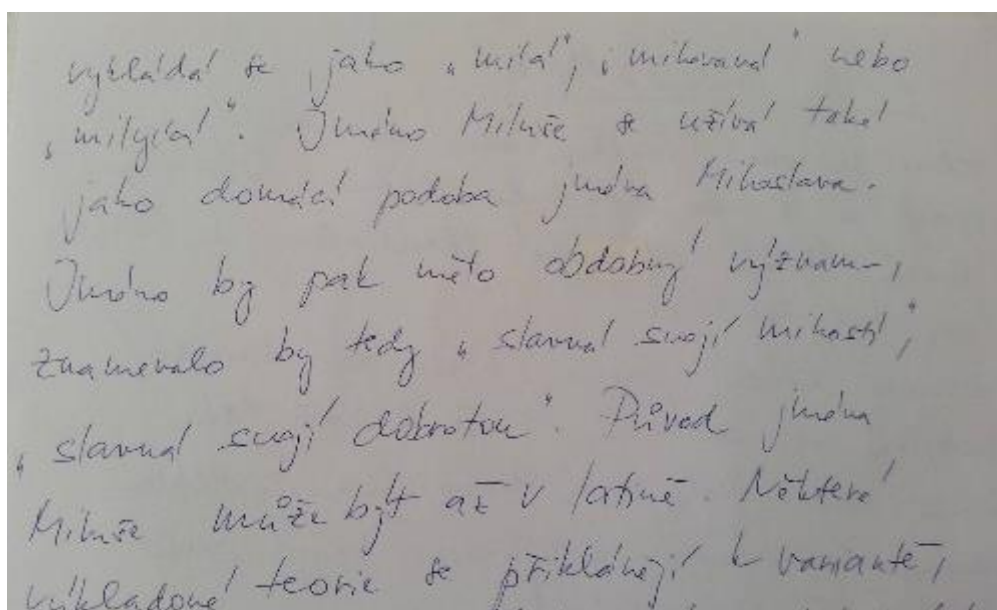 vykládá se jako „milá", „milovaná" nebo
„milující". Jméno Miluše se užívá také
jako domácí podoba jména Miloslava.
Jméno by pak mělo obdobný význam,
znamenalo by tedy „slavná svojí milostí",
„slavná svojí dobrotou". Původ jména
Miluše může být až v latině. Některé
výkladové teorie se přiklánějí k variantě,